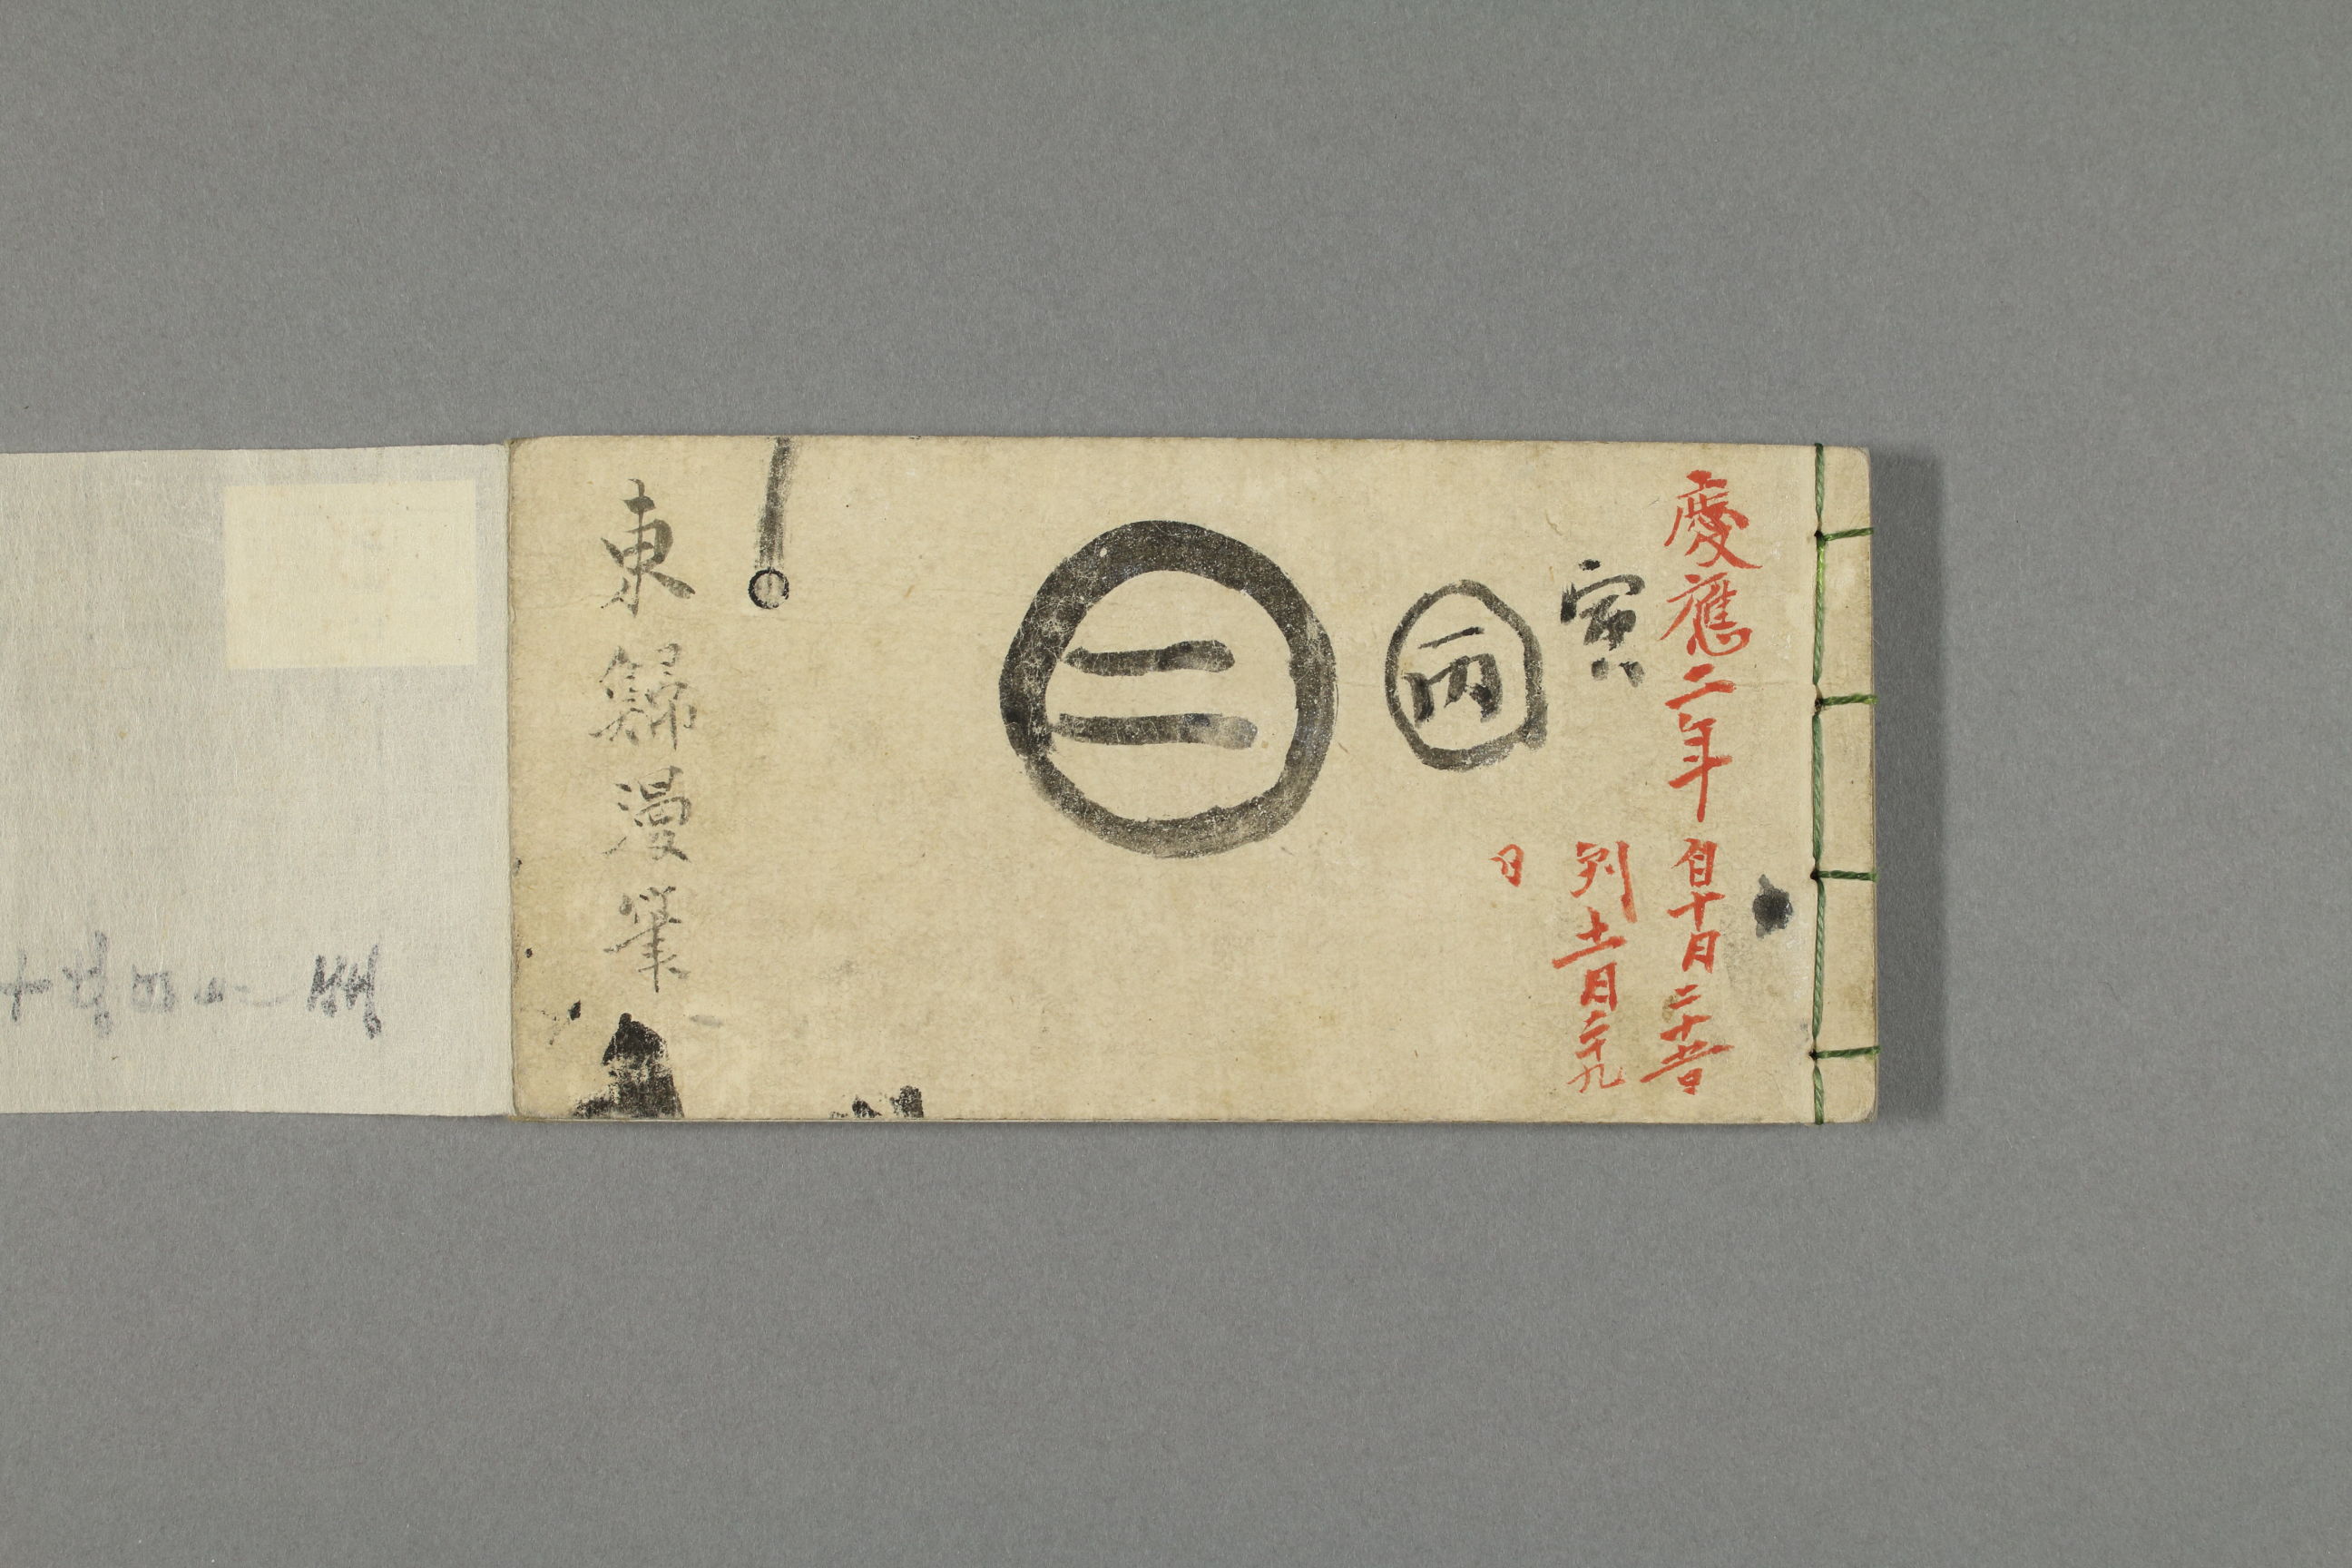 慶應二年
自十月二十
到十一月二十九
日
寅
丙
二
東歸漫筆